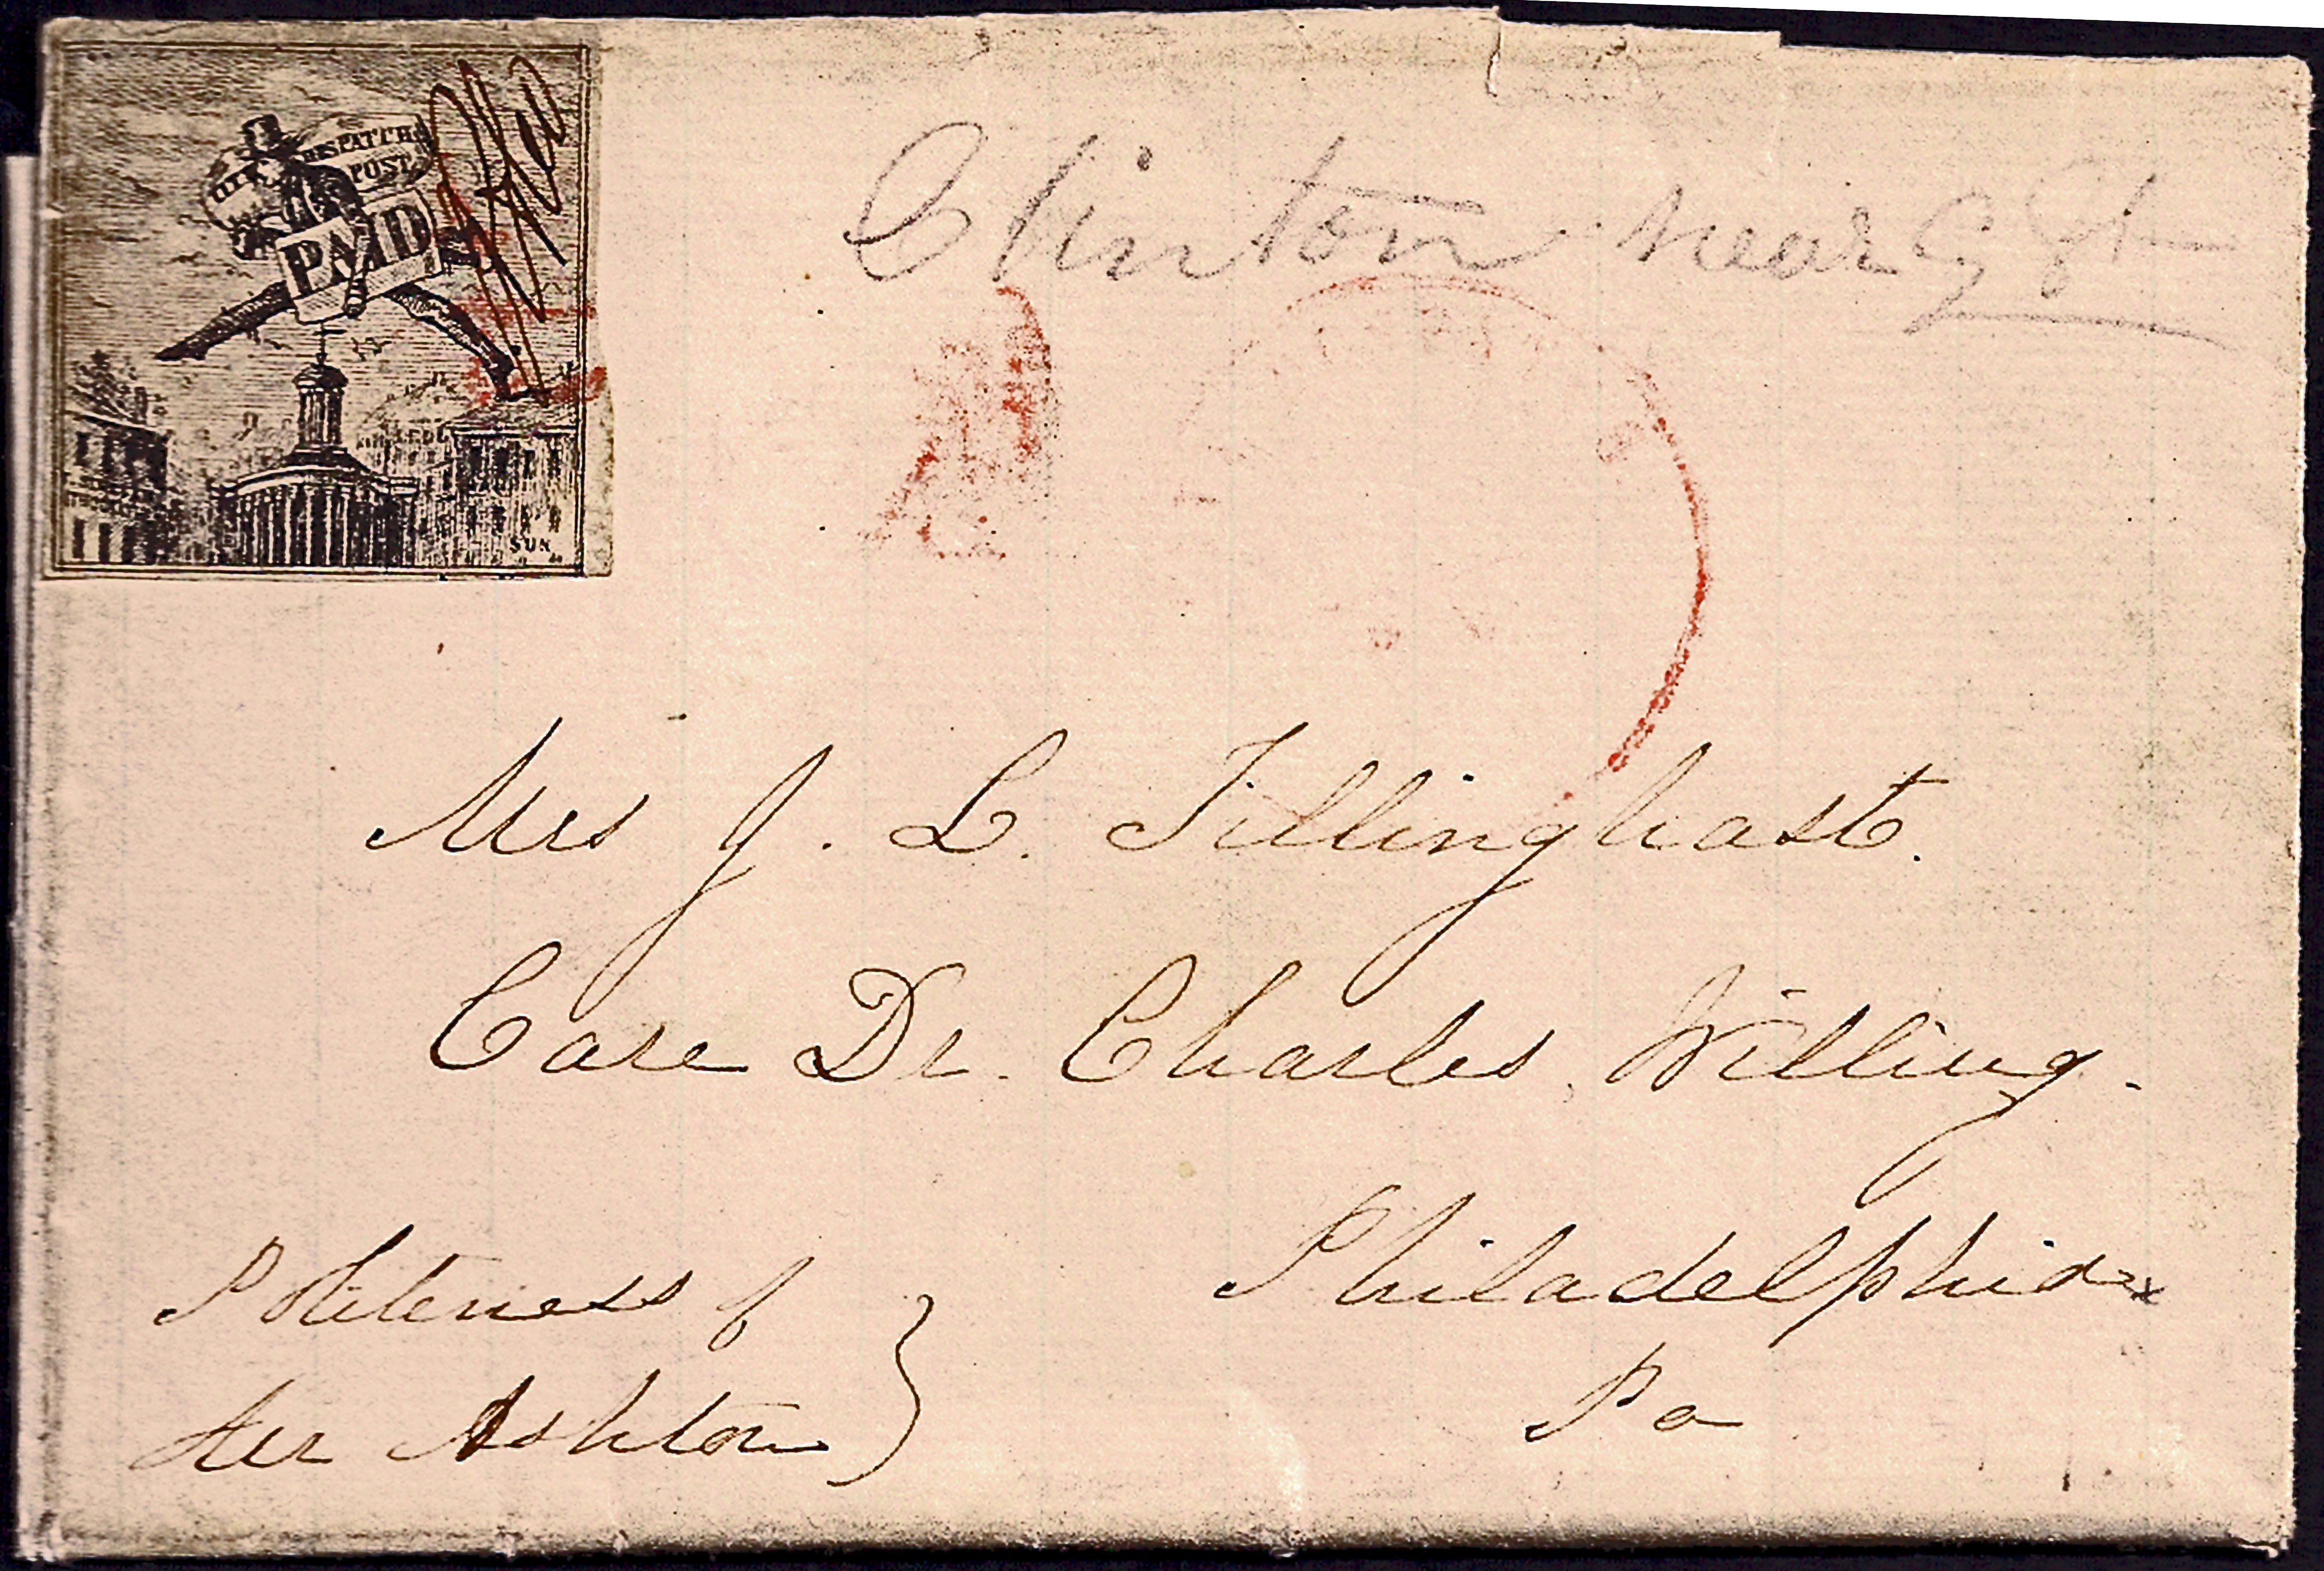 CITY DESPATCH
POST.
PAID
SUN
Clinton near 9 St
Mrs J. L. Tillinghast.
Care Dr. Charles Willing.
Philadelphia
Pa
Politeness of
Mr Ashton